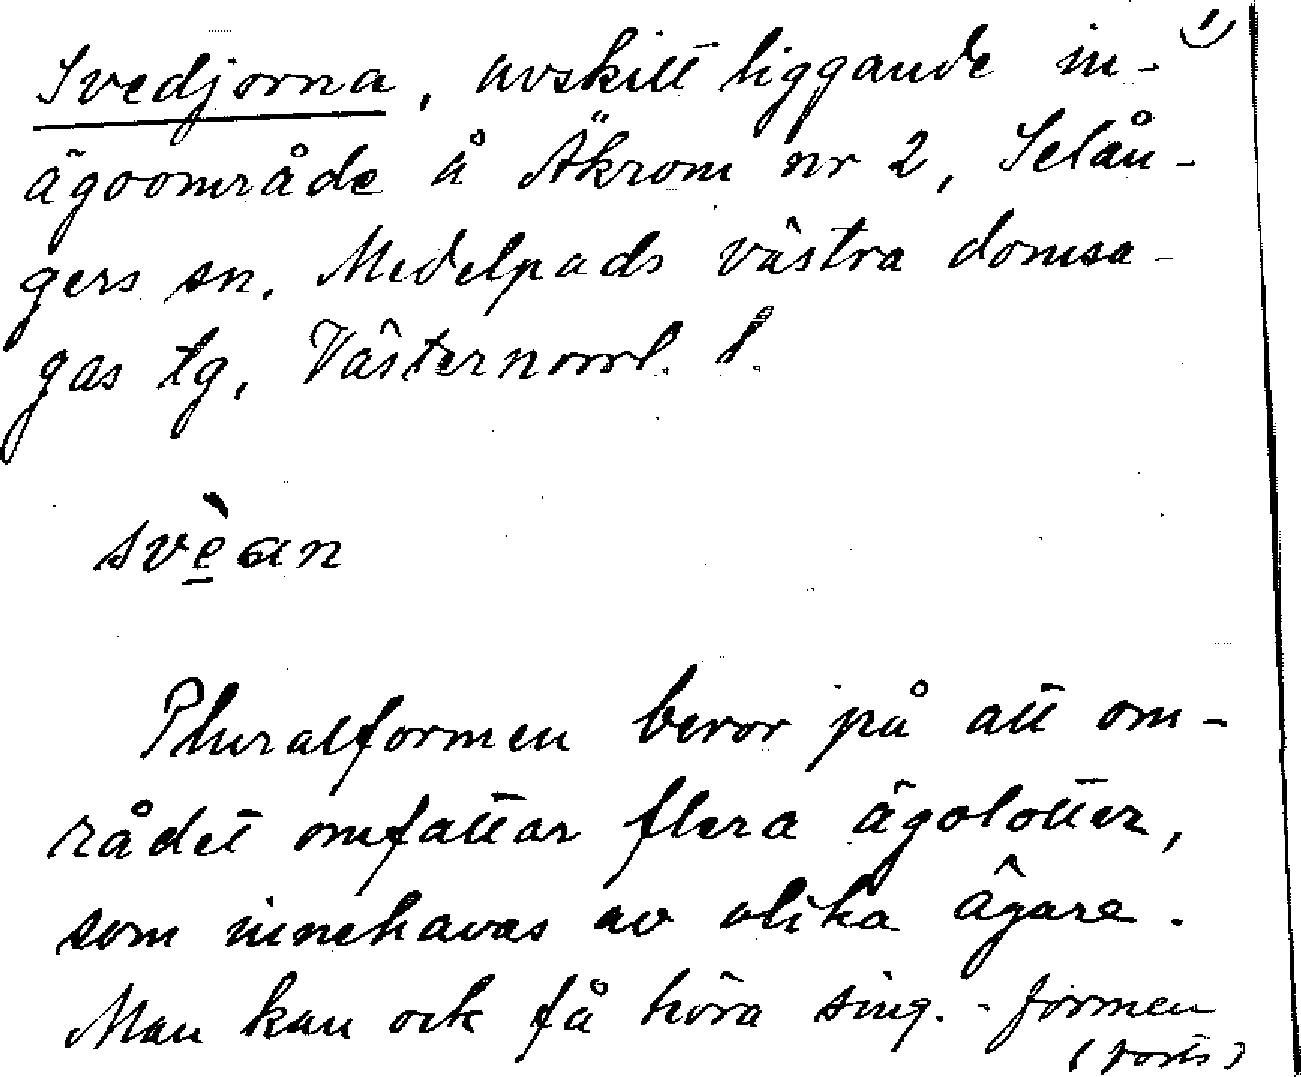 1)
Svedjorna, avskilt liggande in-
ägoområde å Äkrom nr 2, Selån-
gers sn. Medelpads västra domsa-
gas tg, Västernorrl. l.
svèan
Pluralformen beror på att om-
rådet omfattar flera ägolotter,
som innehavas av olika ägare.
Man kan ock få höra sing.-formen
(forts)